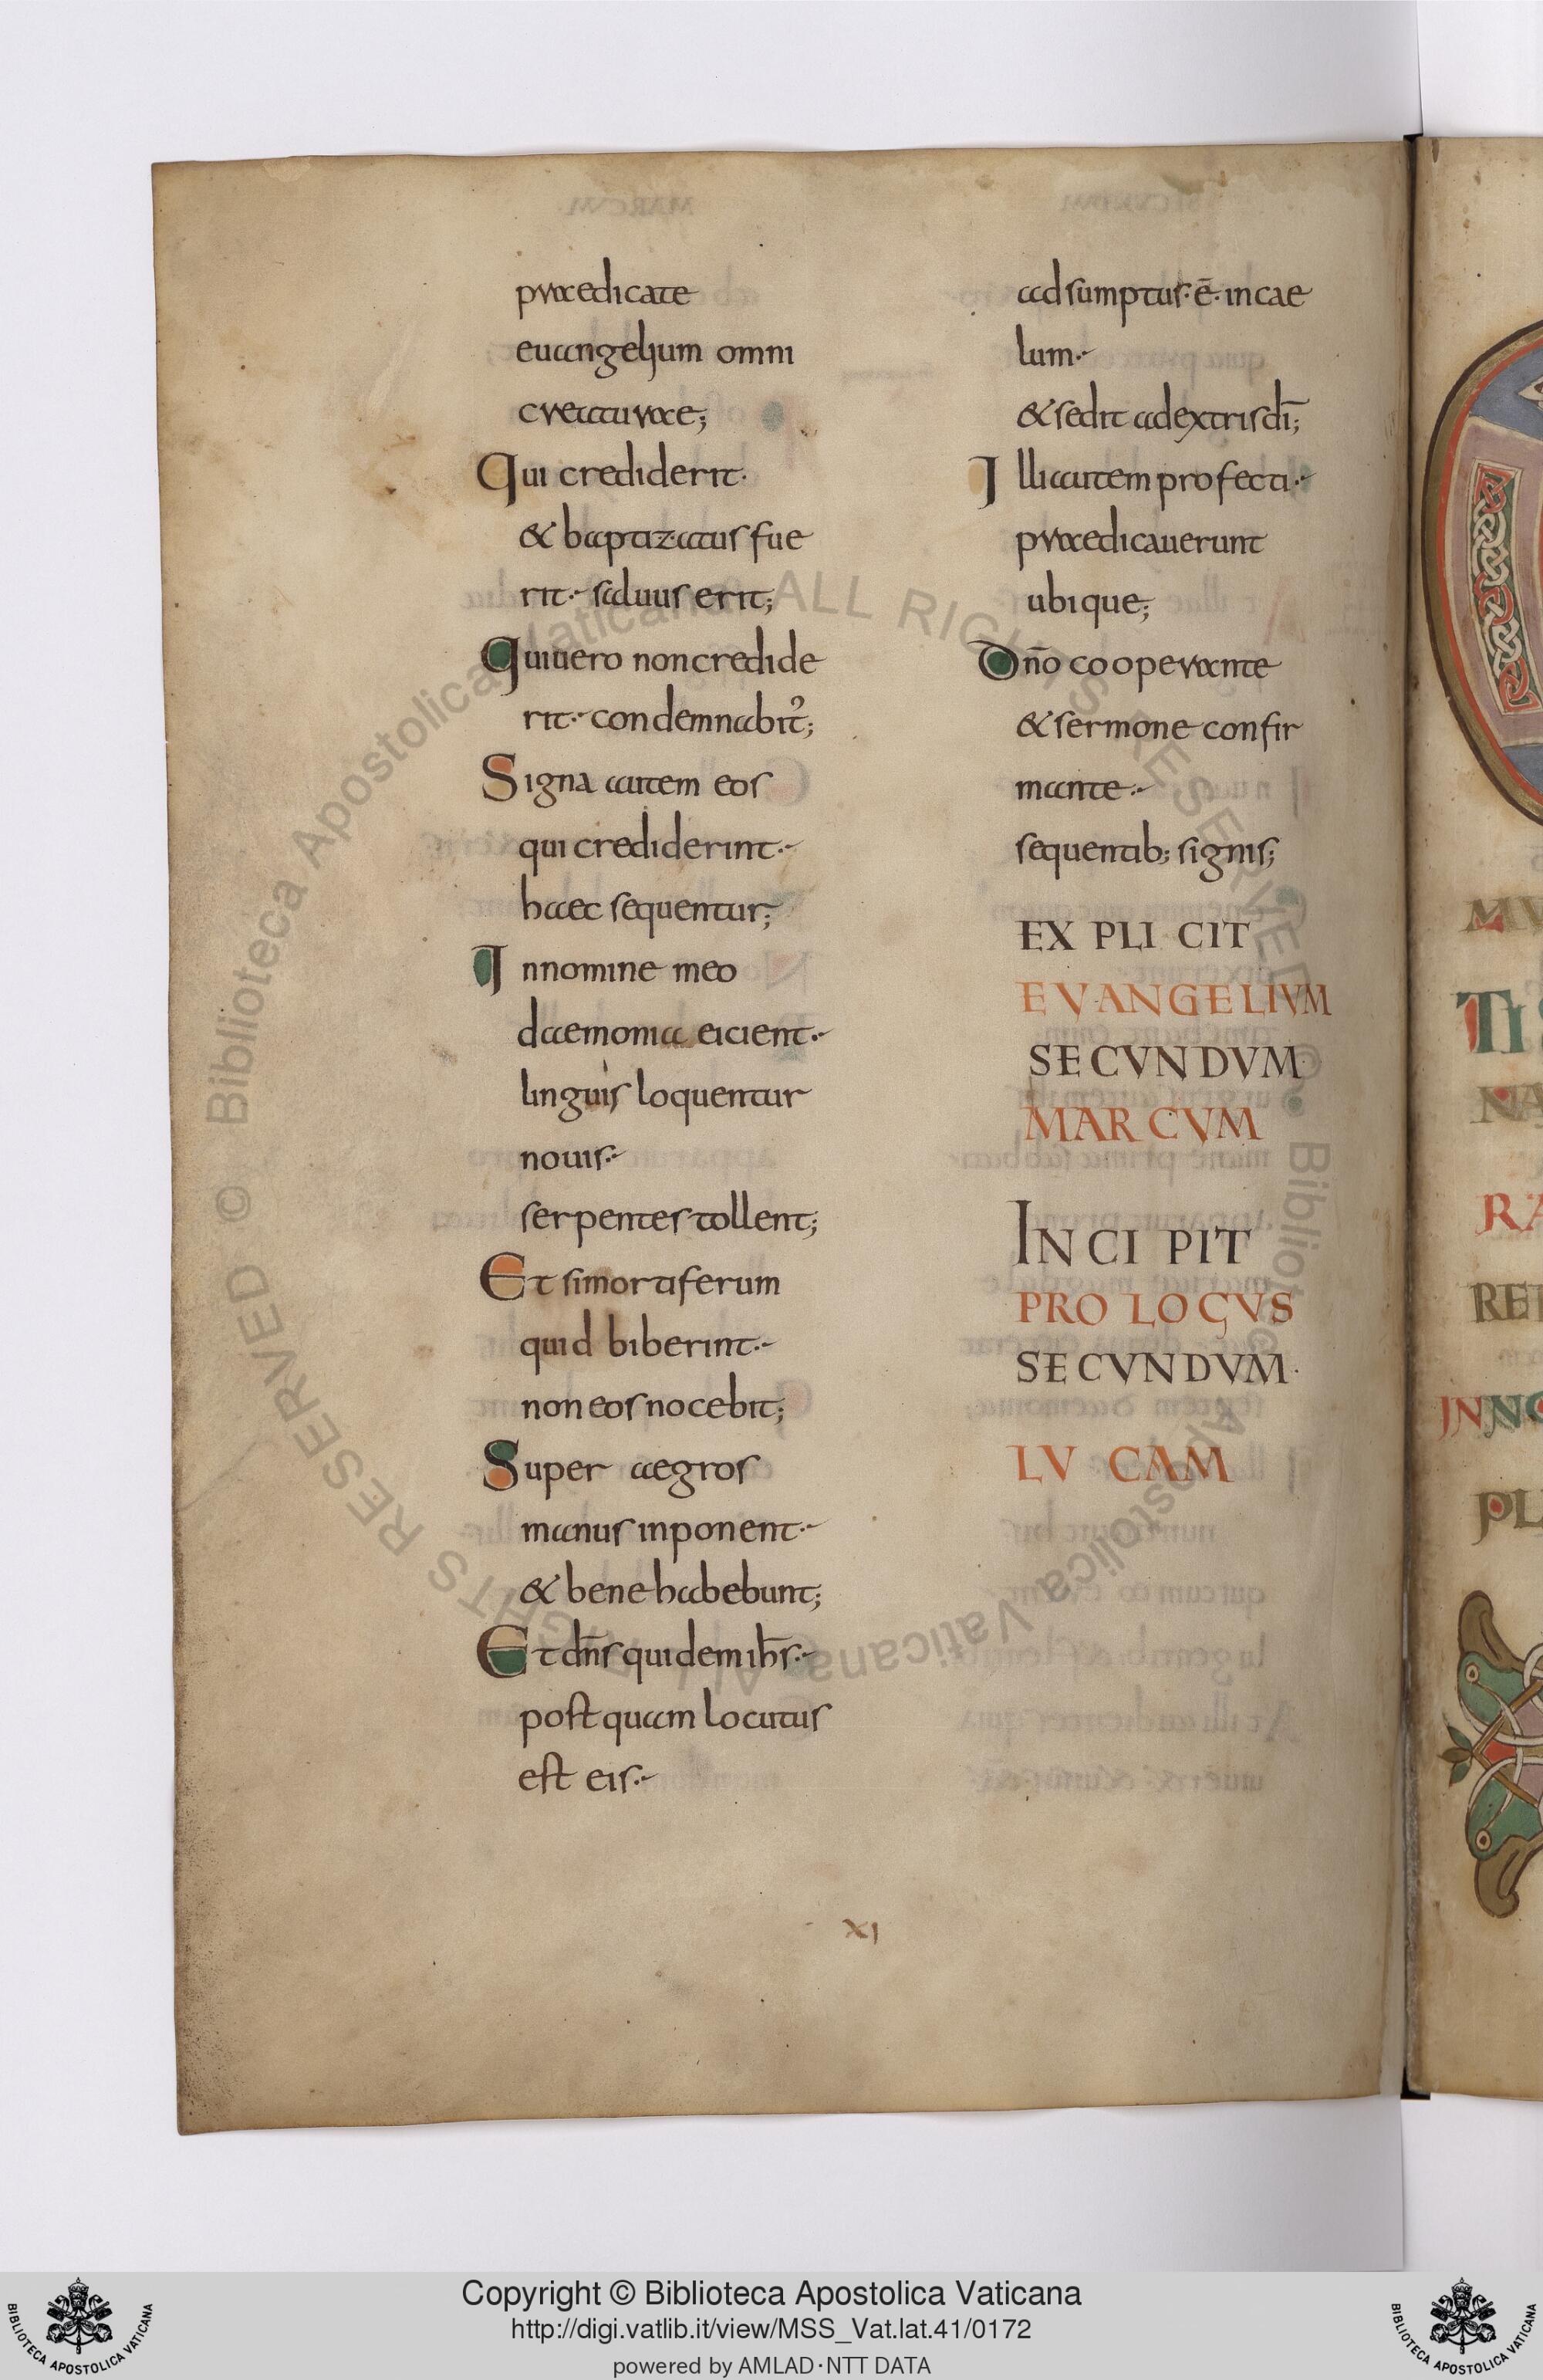 praedicate
euangelium omni
creaturae;
Qui crediderit·
& baptizatus fue
rit· saluus erit;
Qui uero non credide
rit· condemnabit̉;
Signa autem eos
qui crediderint·
haec sequentur;
In nomine meo
daemonia eicient·
linguis loquentur
nouis·
serpentes tollent;
Et si mortiferum
quid biberint·
non eos nocebit;
Super aegros
manus inponent·
& bene habebunt;
Et dn̄s quidem ih̄s·
postquam locutus
est eis·
adsumptus· ē· in cae
lum·
& sedit ad extris dī;
Illi autem profecti·
praedicauerunt
ubique;
Dn̄o cooperante
& sermone confir
mante·
sequentib; signis;
EXPLICIT
EVANGELIVM
SECVNDVM
MARCVM
INCIPIT
PROLOGVS
SECVNDVM·
LVCAM
XI
MV
TIS
NA
RA
RE
INNO
PL
Copyright © Biblioteca Apostolica Vaticana
http://digi.vatlib.it/view/MSS_Vat.lat.41/0172
powered by AMLAD·NTT DATA
BIBLIOTECA APOSTOLICA VATICANA
BIBLIOTECA APOSTOLICA VATICANA